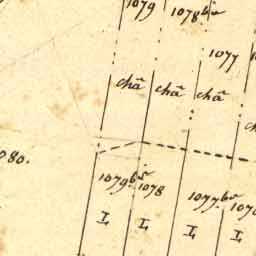 1079 1078bis
1077
châ châ châ
080.
1079bis 1078 1077bis
I I I I